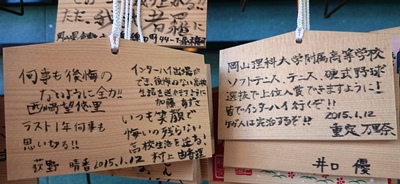 何事も後悔の
ないように全力!!
ラスト1年何事も
思い切る!!
荻野 晴香 2015.1.12
インターハイ出場
でき、後悔のない高校
生活を送れますように
加藤
いつも笑顔で
悔いの残らない
高校生活を送る!
村上 由
岡山理科大学附属高等学校
ソフトテニス、テニス、硬式野球
選抜で上位入賞できますように!
皆でインターハイ行くぞ!!
ケガ人は完治するぞ!? 2015.1.12
重定 万里奈
井口 優